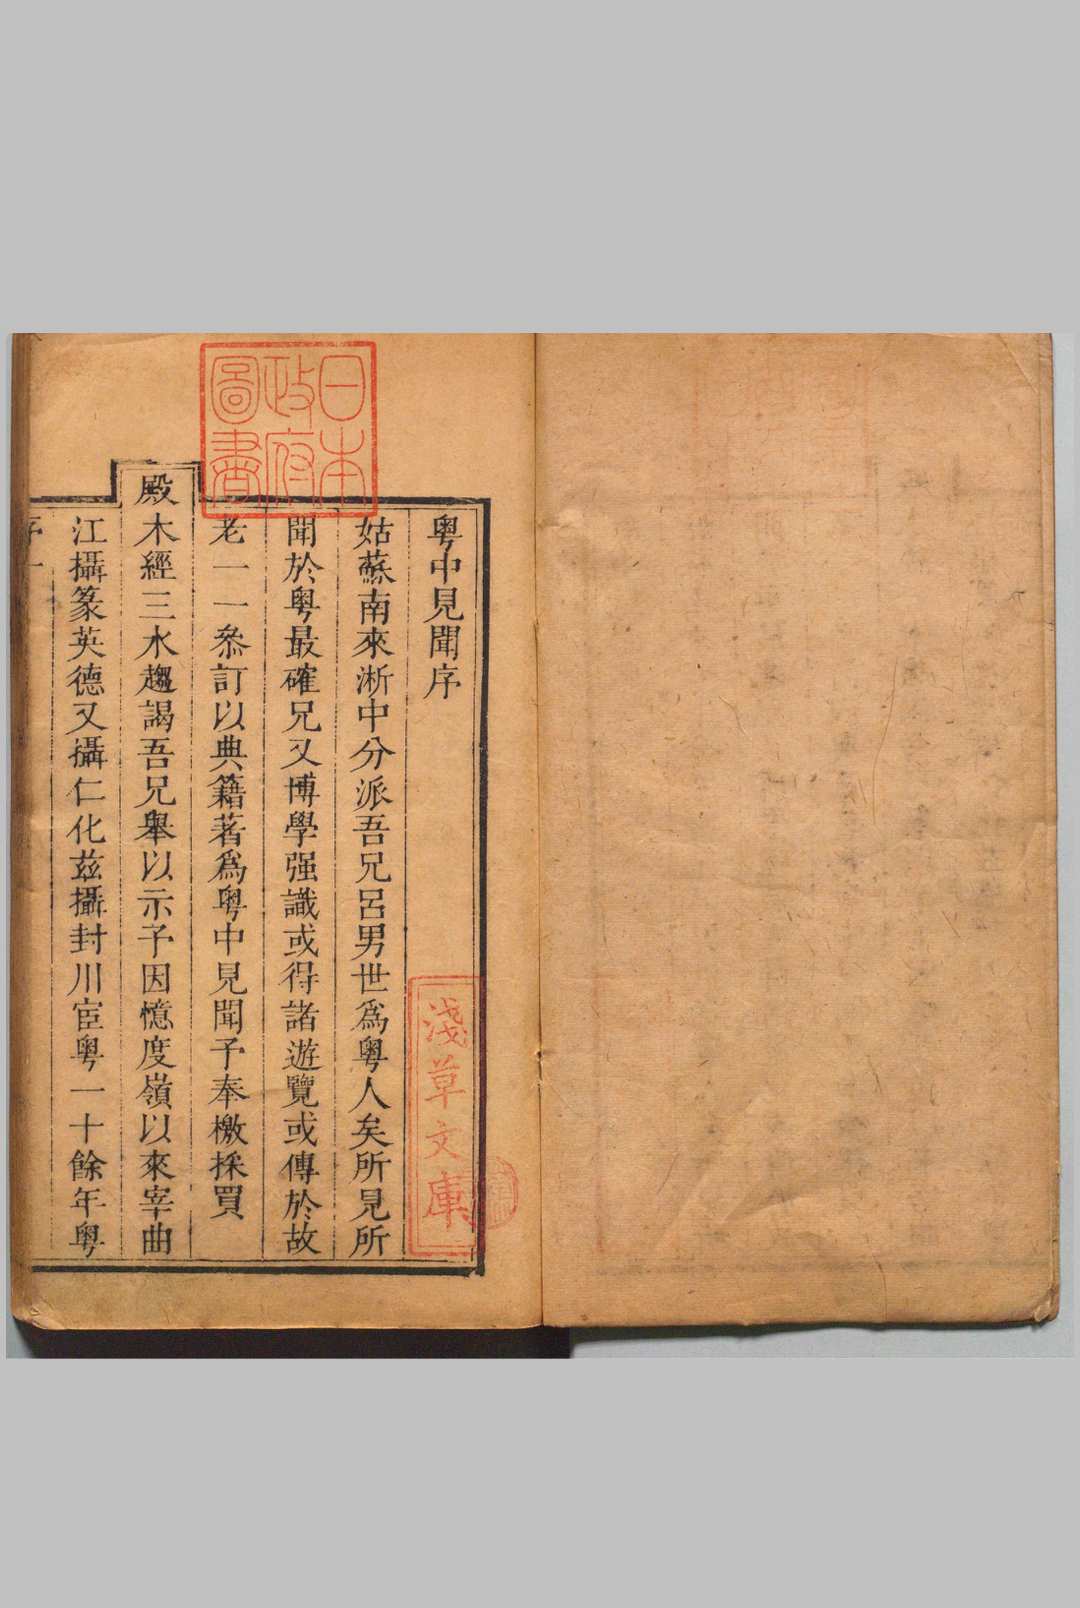 粵中見聞序
姑蘇南來淅中分派吾兄呂男世爲粵人矣所見所
聞於粵最確兄又博學强識或得諸遊覽或傳於故
老一一叅訂以典籍著爲粵中見聞予奉檄採買
殿木經三水趨謁吾兄舉以示予因憶度嶺以來宰曲
江攝篆英德又攝仁化茲攝封川宦粵一十餘年粵
序一
日本
政府
圖書
淺草文庫